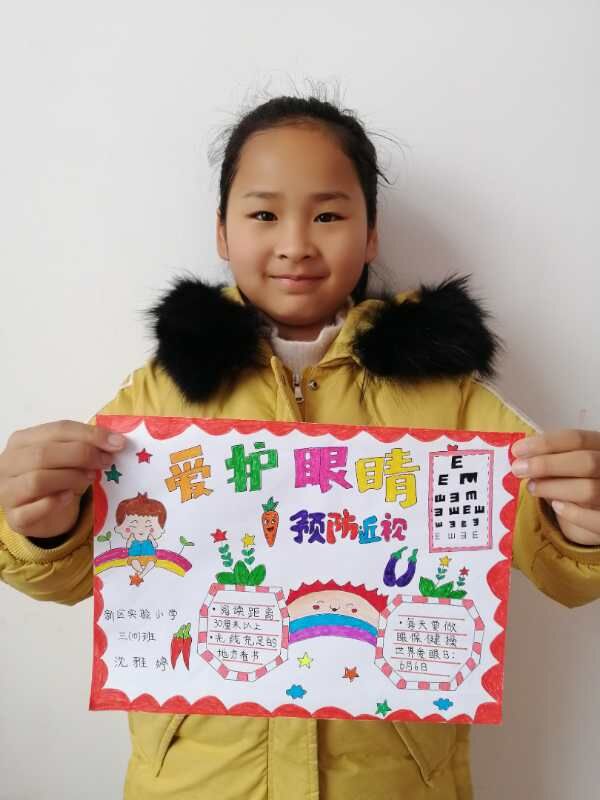 爱护眼睛
预防近视
新区实验小学
三(10)班
沈雅婷
•阅读距离
30厘米以上
•光线充足的
地方看书
•每天要做
眼保健操
世界爱眼日：
6月6日
E
E M
E M E